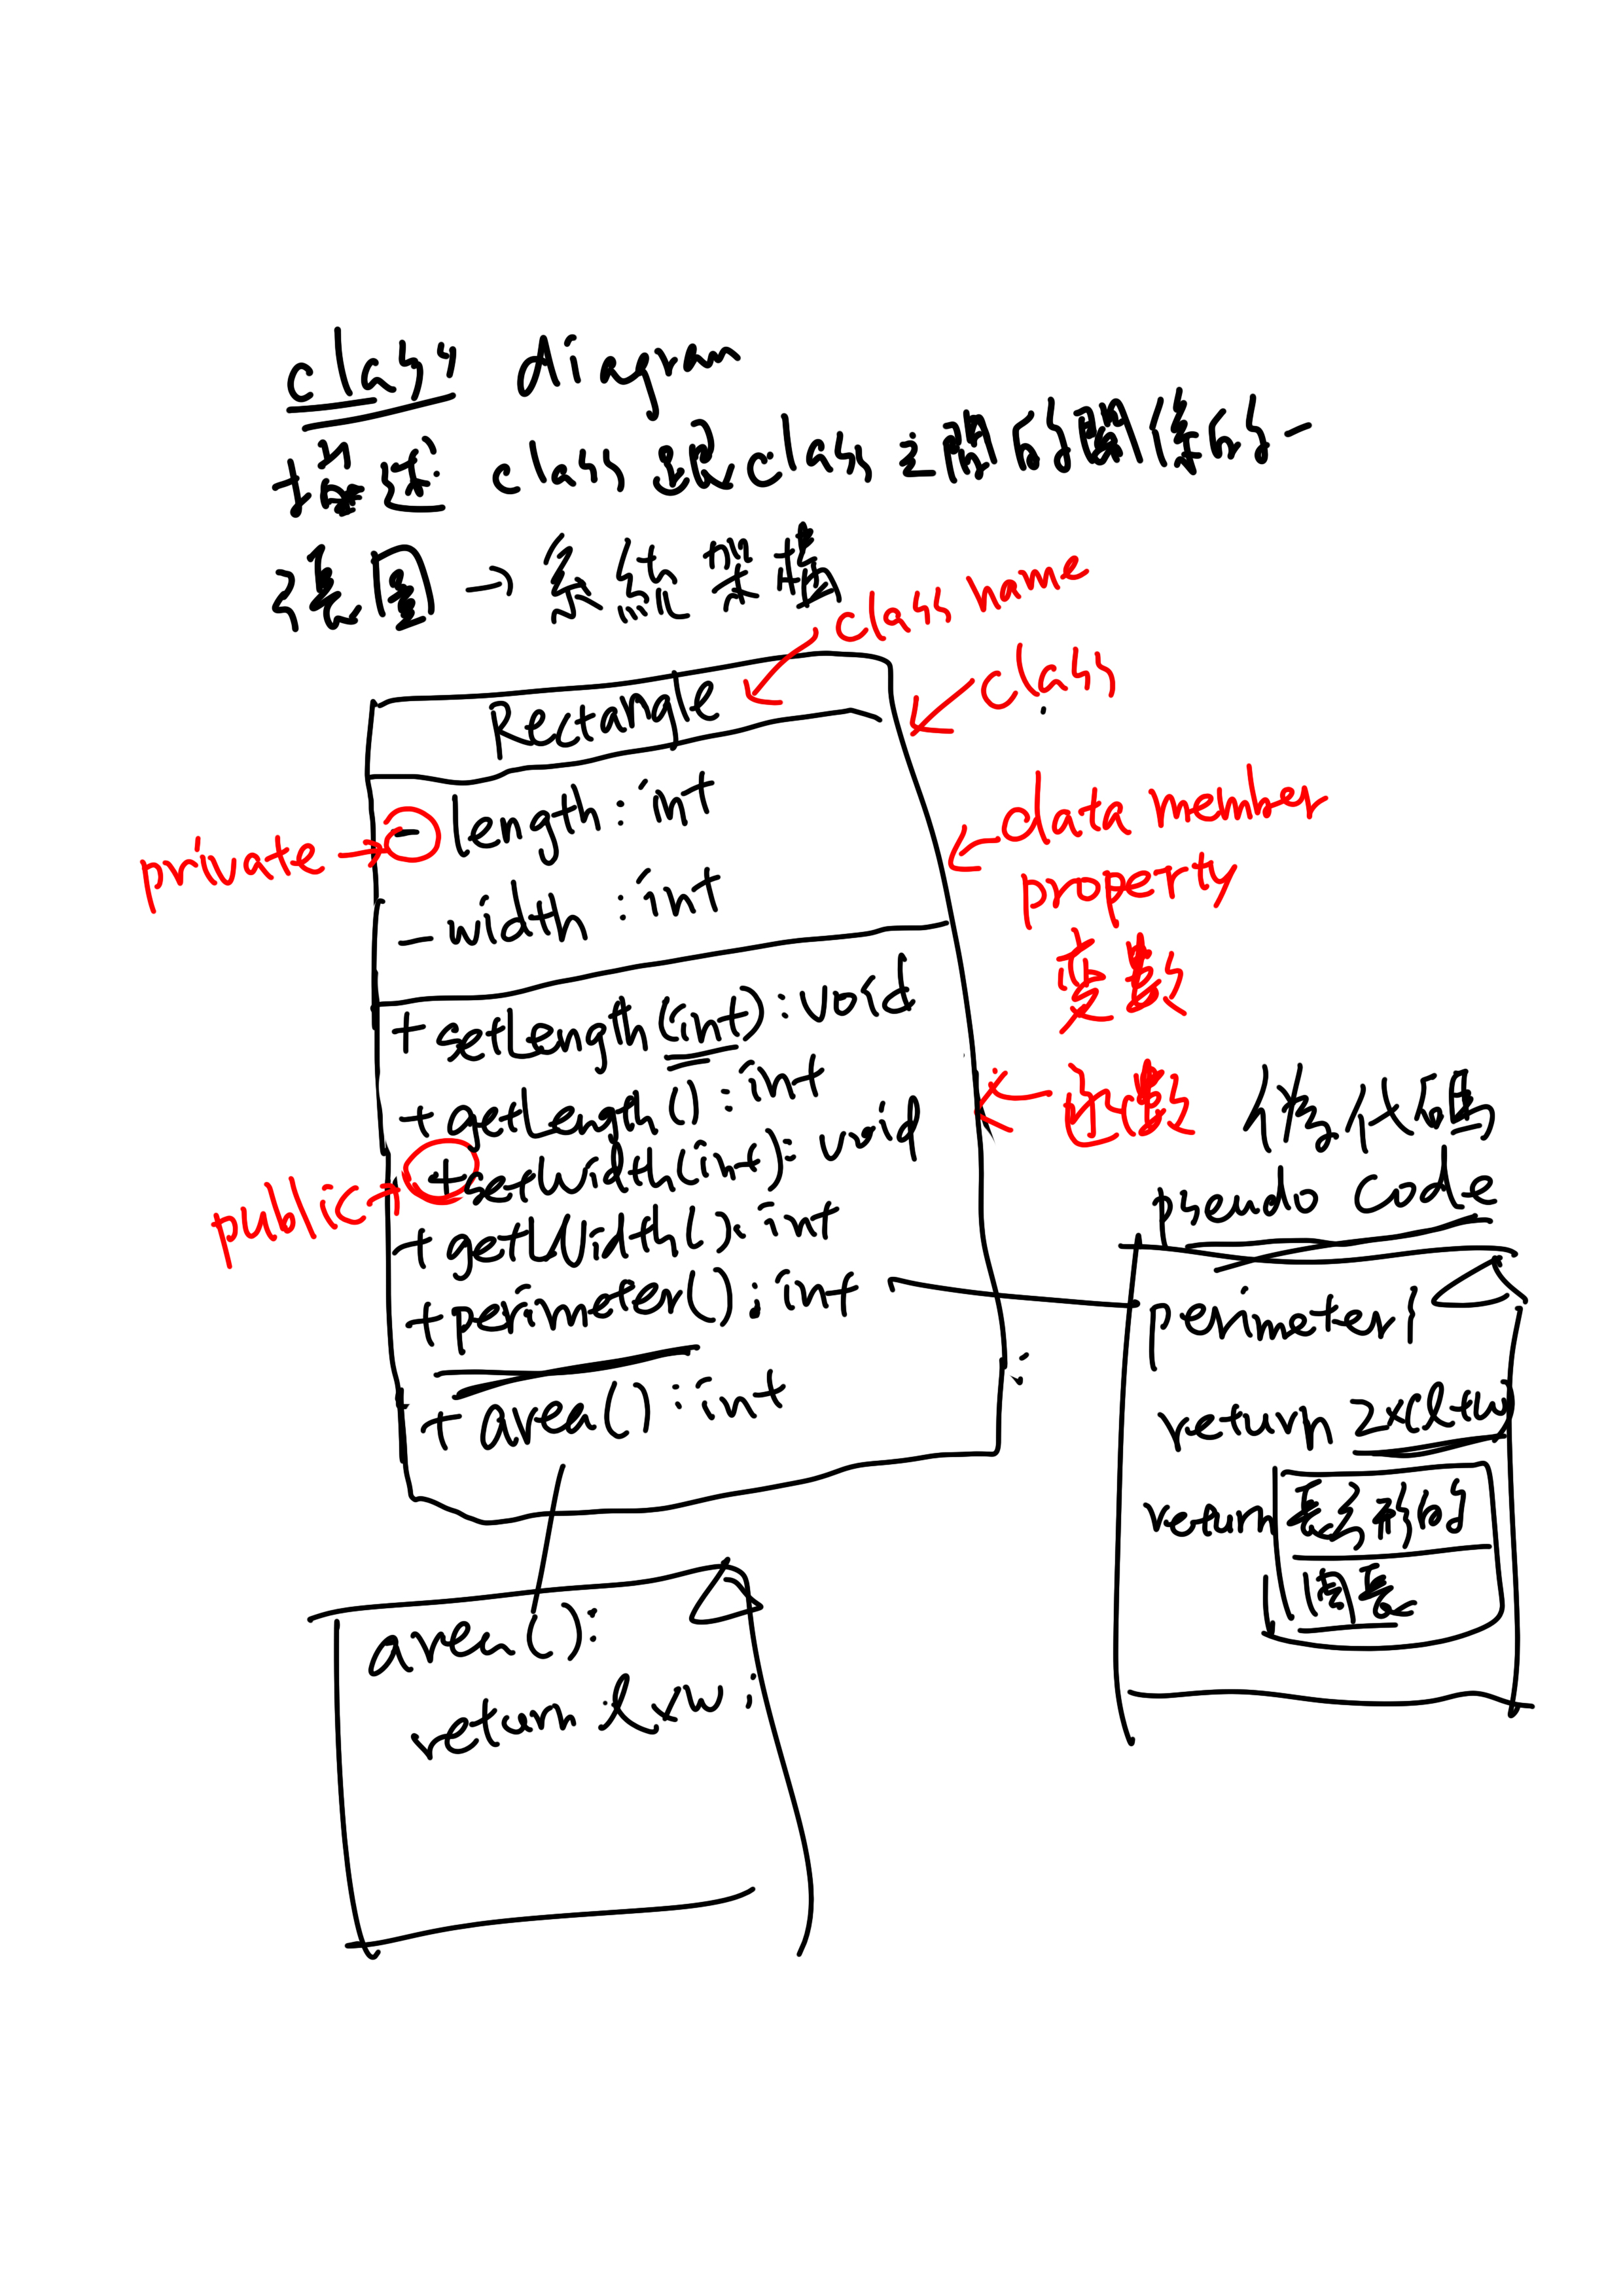 class diagram
描述 class 與 class 之間的關係的一
張圖 → 系統架構
class name
class
Rectangle
- length : int
private
data member
property
變數
- width : int
+ setLength(int) : void
+ getLength() : int
函數
+ setWidth(int) : void
public
+ getWidth() : int
+ perimeter() : int
+ area() : int
偽代碼
pseudo code
perimeter
return 2x(l+w
return 長方形的
周長
area():
return lxw;